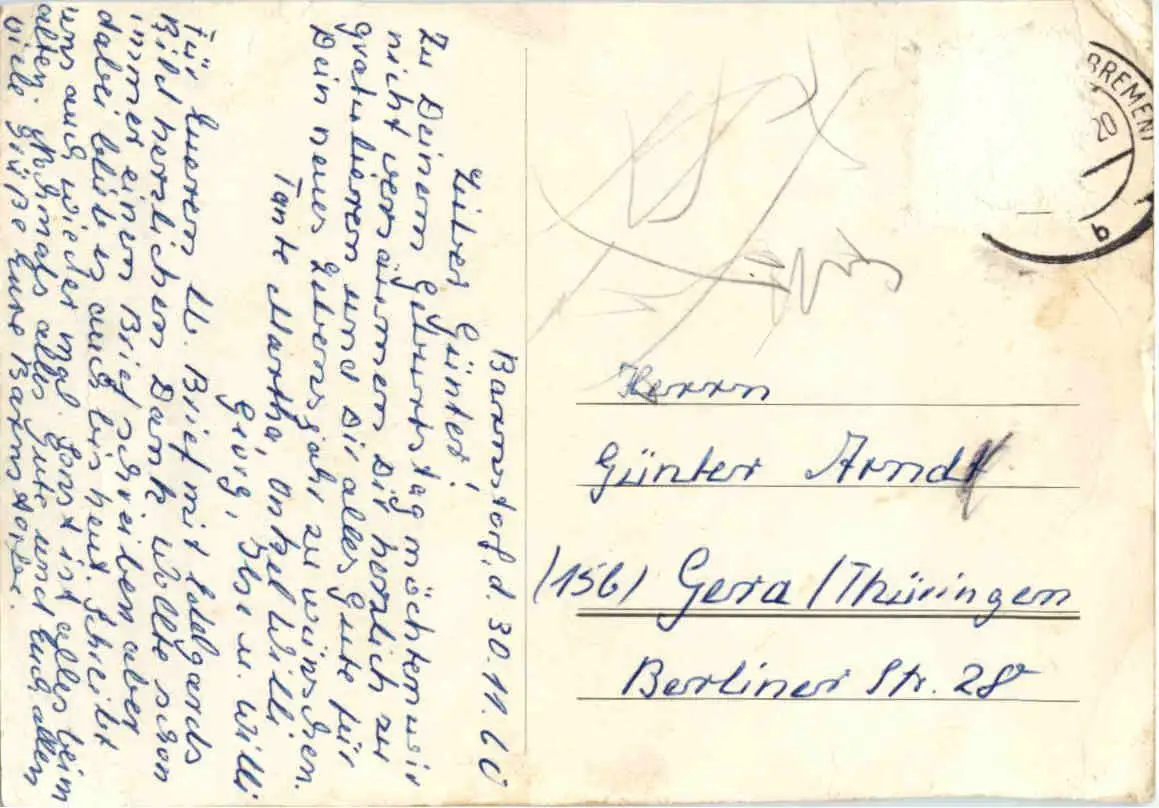 Barnstorf, d. 30.11.60
Lieber Günter!
Zu Deinem Geburtstag möchten wir
nicht versäumen Dir herzlich zu
gratulieren und dir alles Gute für
Dein neues Lebensjahr zu wünschen.
Tante Martha, Onkel Willi
Ilse u. Willi
Für Eueren Brief mit Edelgards
Bild herzlichen Dank wollte schon
immer einen Brief schreiben aber
dabei blieb es auch bis heut. Schreibt
uns auch wieder mal. Sonst ist alles beim
alten. Nochmals alles Gute und Euch allen
viele Grüße Eure Barnstorfer.
BREMEN
20
b
Herrn
Günter Arndt
(15b) Gera/Thüringen
Berliner Str. 28